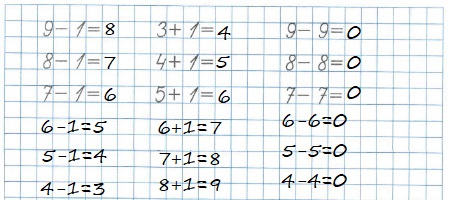 9-1=8 3+1=4 9-9=0
8-1=7 4+1=5 8-8=0
7-1=6 5+1=6 7-7=0
6-1=5 6+1=7 6-6=0
5-1=4 7+1=8 5-5=0
4-1=3 8+1=9 4-4=0